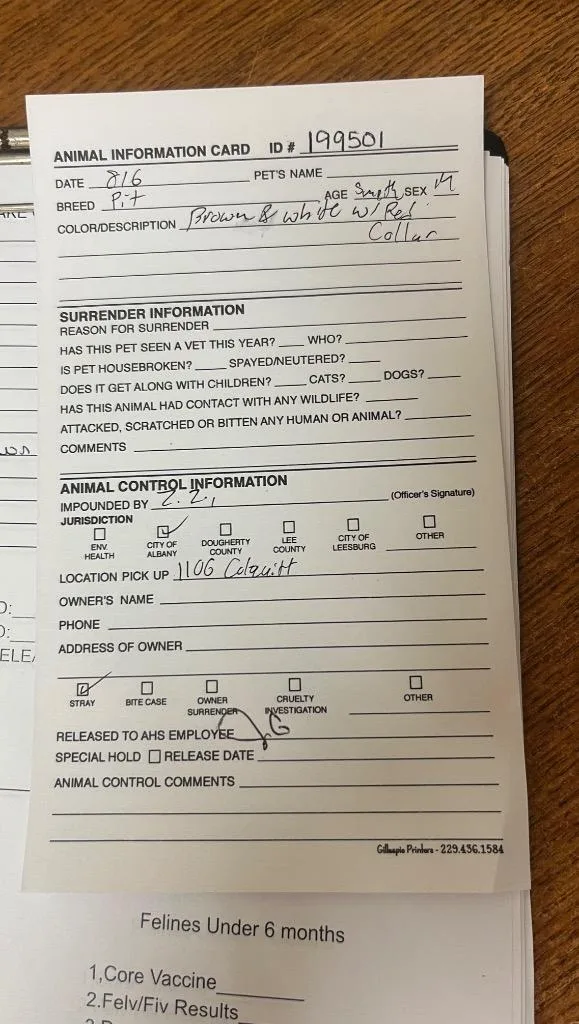 ANIMAL INFORMATION CARD ID # 199501
DATE 8/6 PET'S NAME
BREED Pit AGE SEX M
COLOR/DESCRIPTION Brown & white w/ Red
Collar
SURRENDER INFORMATION
REASON FOR SURRENDER
HAS THIS PET SEEN A VET THIS YEAR? WHO?
IS PET HOUSEBROKEN? SPAYED/NEUTERED?
DOES IT GET ALONG WITH CHILDREN? CATS? DOGS?
HAS THIS ANIMAL HAD CONTACT WITH ANY WILDLIFE?
ATTACKED, SCRATCHED OR BITTEN ANY HUMAN OR ANIMAL?
COMMENTS
ANIMAL CONTROL INFORMATION
IMPOUNDED BY (Officer's Signature)
JURISDICTION
ENV. HEALTH CITY OF ALBANY DOUGHERTY COUNTY LEE COUNTY CITY OF LEESBURG OTHER
LOCATION PICK UP 1106 Colquitt
OWNER'S NAME
PHONE
ADDRESS OF OWNER
STRAY BITE CASE OWNER SURRENDER CRUELTY INVESTIGATION OTHER
RELEASED TO AHS EMPLOYEE
SPECIAL HOLD RELEASE DATE
ANIMAL CONTROL COMMENTS
Gillespie Printers - 229.436.1584
Felines Under 6 months
1,Core Vaccine
2.Felv/Fiv Results